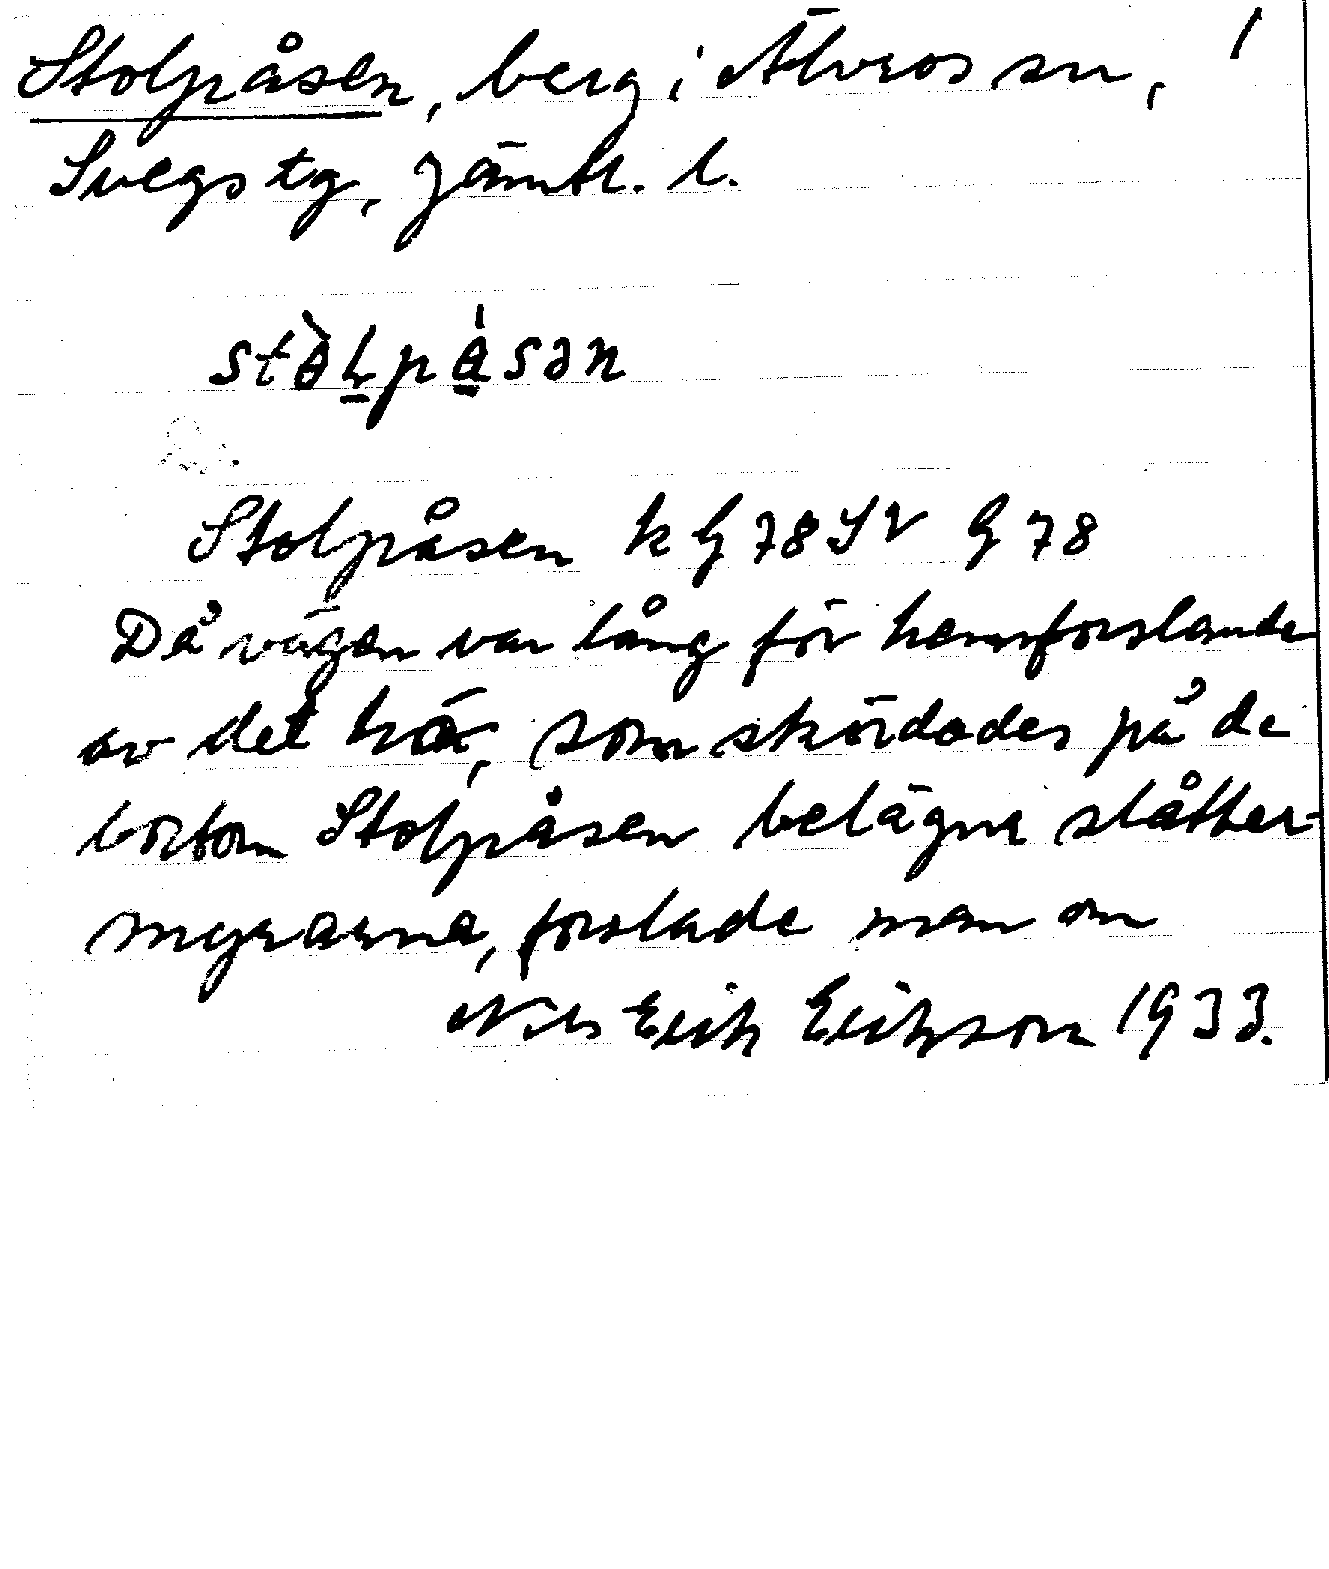 Stolpåsen, berg i Älvros sn, 1
Svegs tg, Jämtl. l.
stòlpåsən
Stolpåsen k G 78 SV G 78
Då vägen var lång för hemforslande
av det hö, som skördades på de
bortom Stolpåsen belägna slåtter-
myrarna, forslade man om
Nils Erik Erikson 1933.